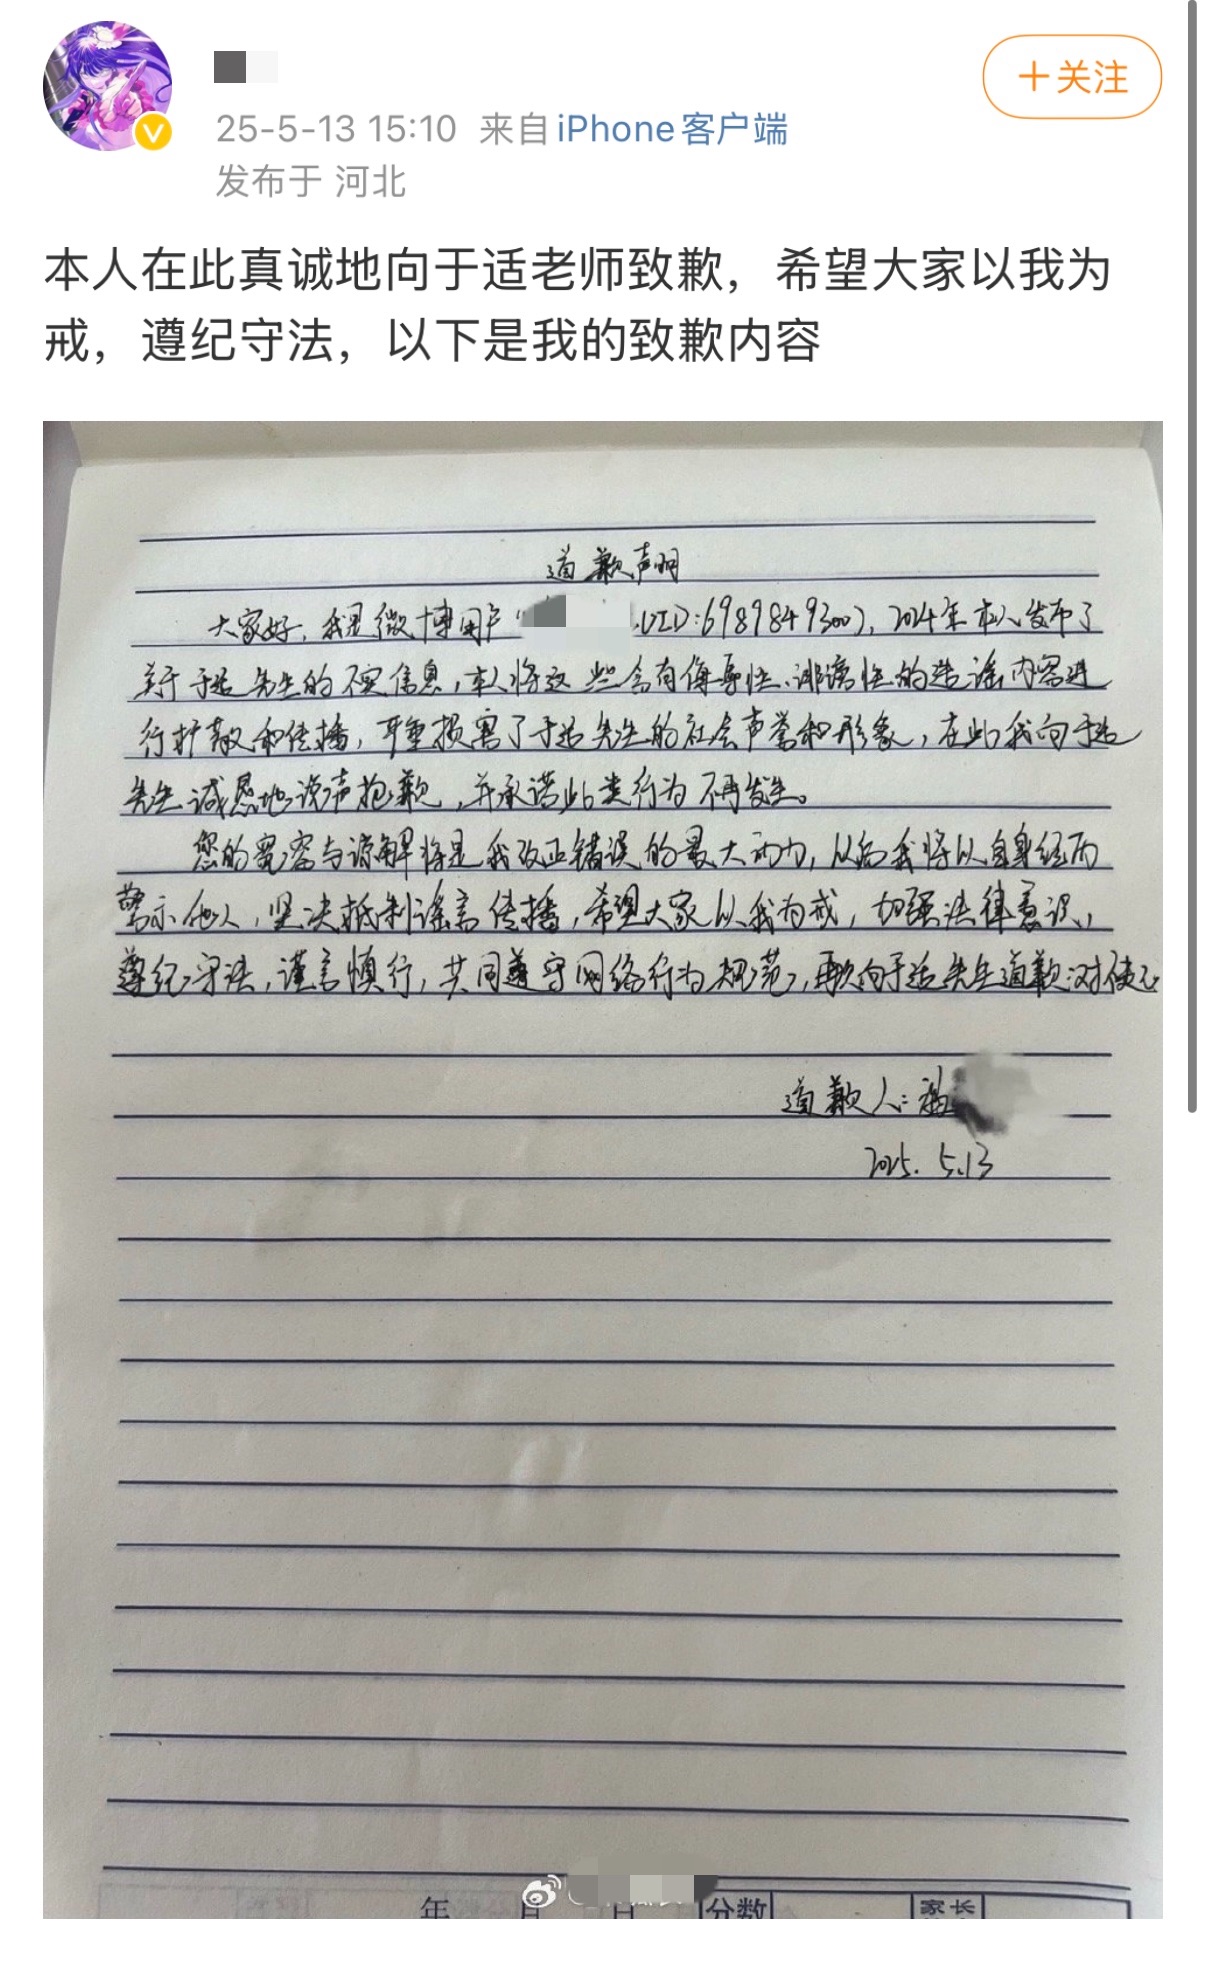 +关注
25-5-13 15:10 来自 iPhone客户端
发布于 河北
本人在此真诚地向于适老师致歉，希望大家以我为
戒，遵纪守法，以下是我的致歉内容
道歉声明
大家好，我是微博用户“ ，UID:6989849300），2024年本人发布了
关于于适先生的不实信息，本人将这些含有侮辱性、诽谤性的造谣内容进
行扩散和传播，严重损害了于适先生的社会声誉和形象，在此我向于适
先生诚恳地说声抱歉，并承诺此类行为不再发生。
您的宽容与谅解将是我改正错误的最大动力，以后我将以自身经历
警示他人，坚决抵制谣言传播，希望大家以我为戒，加强法律意识，
遵纪守法，谨言慎行，共同遵守网络行为规范，再次向于适先生道歉
道歉人：
2025.5.13
年 月 日 分数 家长